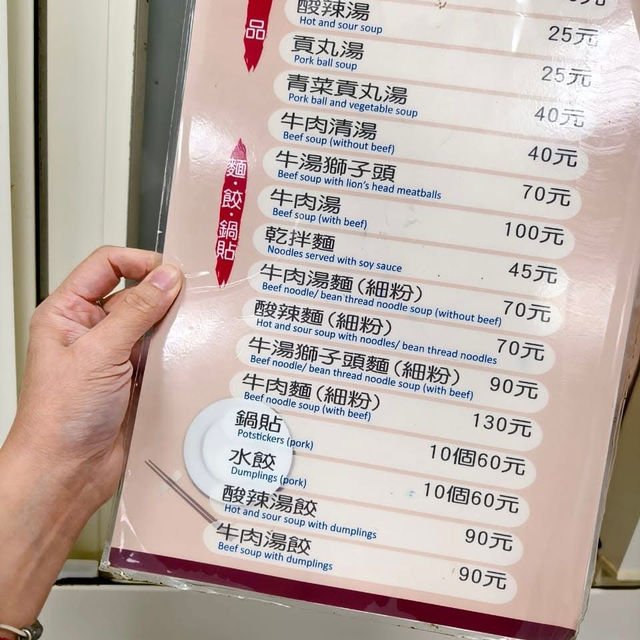 品
酸辣湯
Hot and sour soup
25元
貢丸湯
Pork ball soup
25元
青菜貢丸湯
Pork ball and vegetable soup
40元
牛肉清湯
Beef soup (without beef)
40元
麵·餃·鍋貼
牛湯獅子頭
Beef soup with lion's head meatballs
70元
牛肉湯
Beef soup (with beef)
100元
乾拌麵
Noodles served with soy sauce
45元
牛肉湯麵(細粉)
Beef noodle/ bean thread noodle soup (without beef)
70元
酸辣麵(細粉)
Hot and sour soup with noodles/ bean thread noodles
70元
牛湯獅子頭麵(細粉)
Beef noodle/ bean thread noodle soup (with beef)
90元
牛肉麵(細粉)
Beef noodle soup (with beef)
130元
鍋貼
Potstickers (pork)
10個60元
水餃
Dumplings (pork)
10個60元
酸辣湯餃
Hot and sour soup with dumplings
90元
牛肉湯餃
Beef soup with dumplings
90元